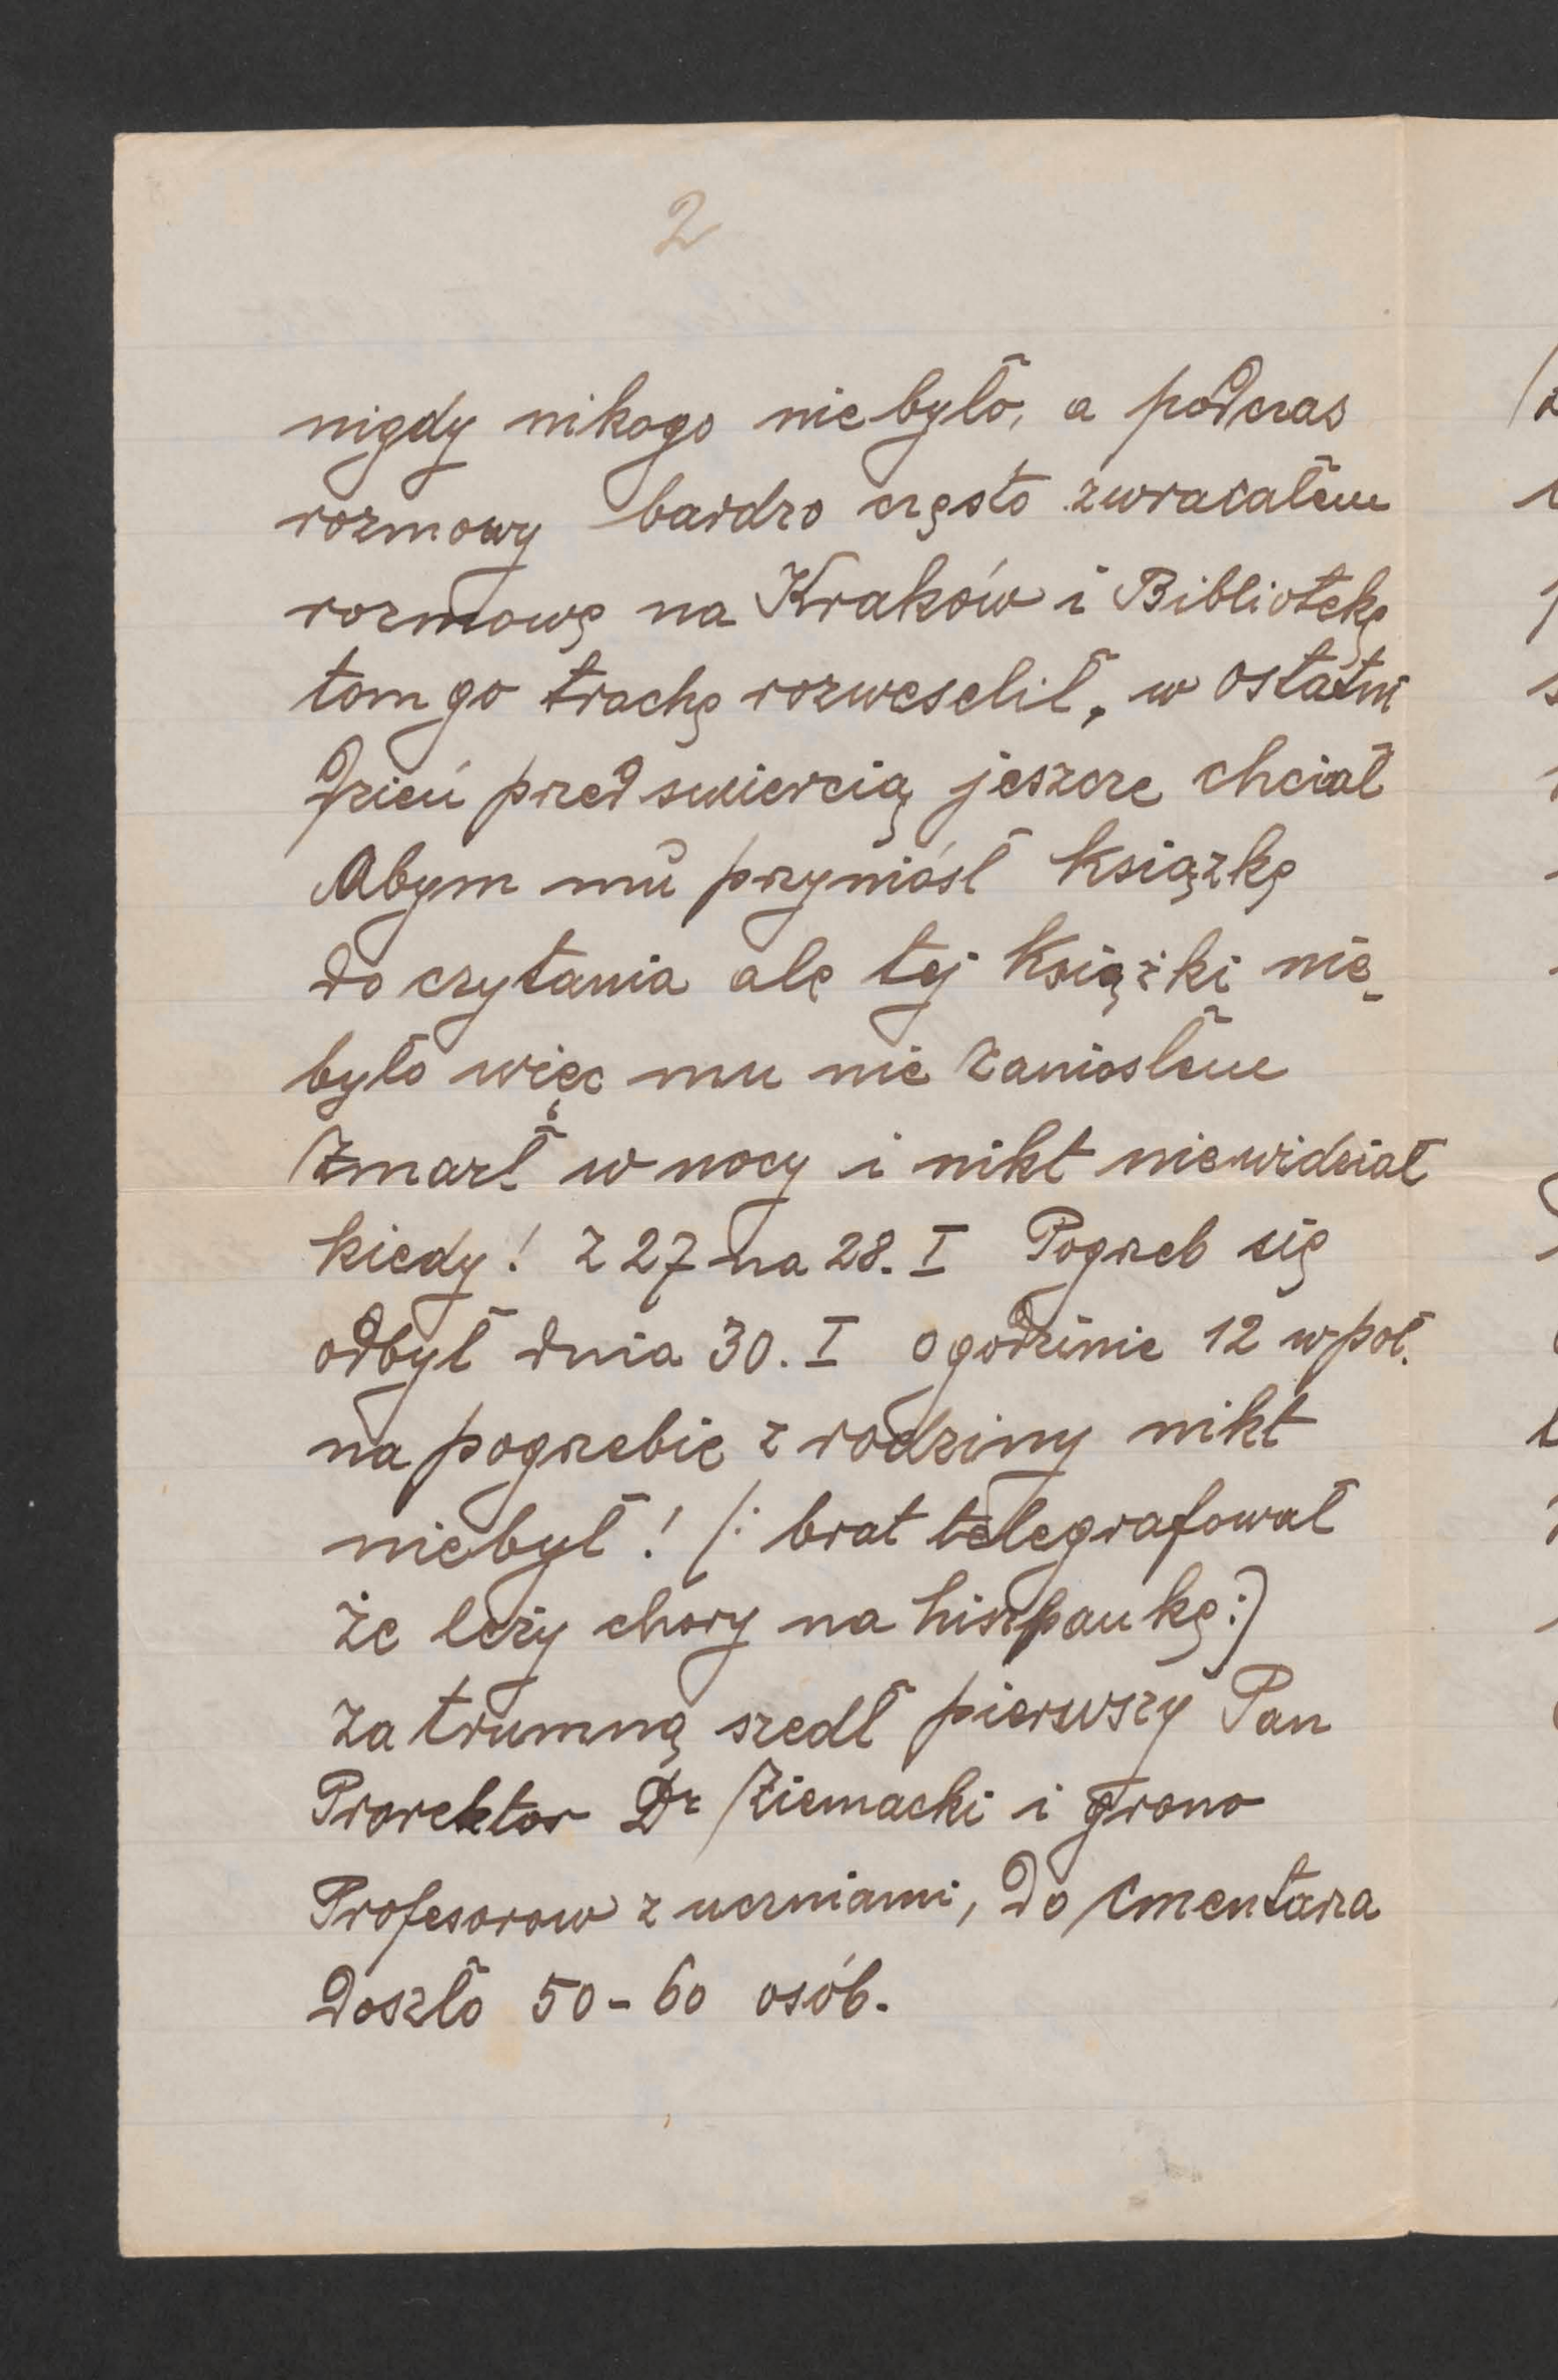 2
nigdy nikogo nie było, a podczas
rozmowy bardzo często zwracałem
rozmowę na Kraków i Bibliotekę
tom go trachę rozweselił, w ostatni
dzień pred smiercią jeszcze chciał
Abym mu przyniósł Książkę
do czytania ale tej Książki nie
było więc mu nie zaniosłem
Zmarł w nocy i nikt niewidział
kiedy! z 27 na 28. I Pogrzeb się
odbył dnia 30. I o godzinie 12 w poł.
na pogrzebie z rodziny nikt
niebył! /: brat telegrafował
że leży chory na hiszpankę :)
za trumną szedł pierwszy Pan
Prorektor Dr Ziemacki i grono
Profesorow z uczniami, do Cmentarza
doszło 50-60 osób.